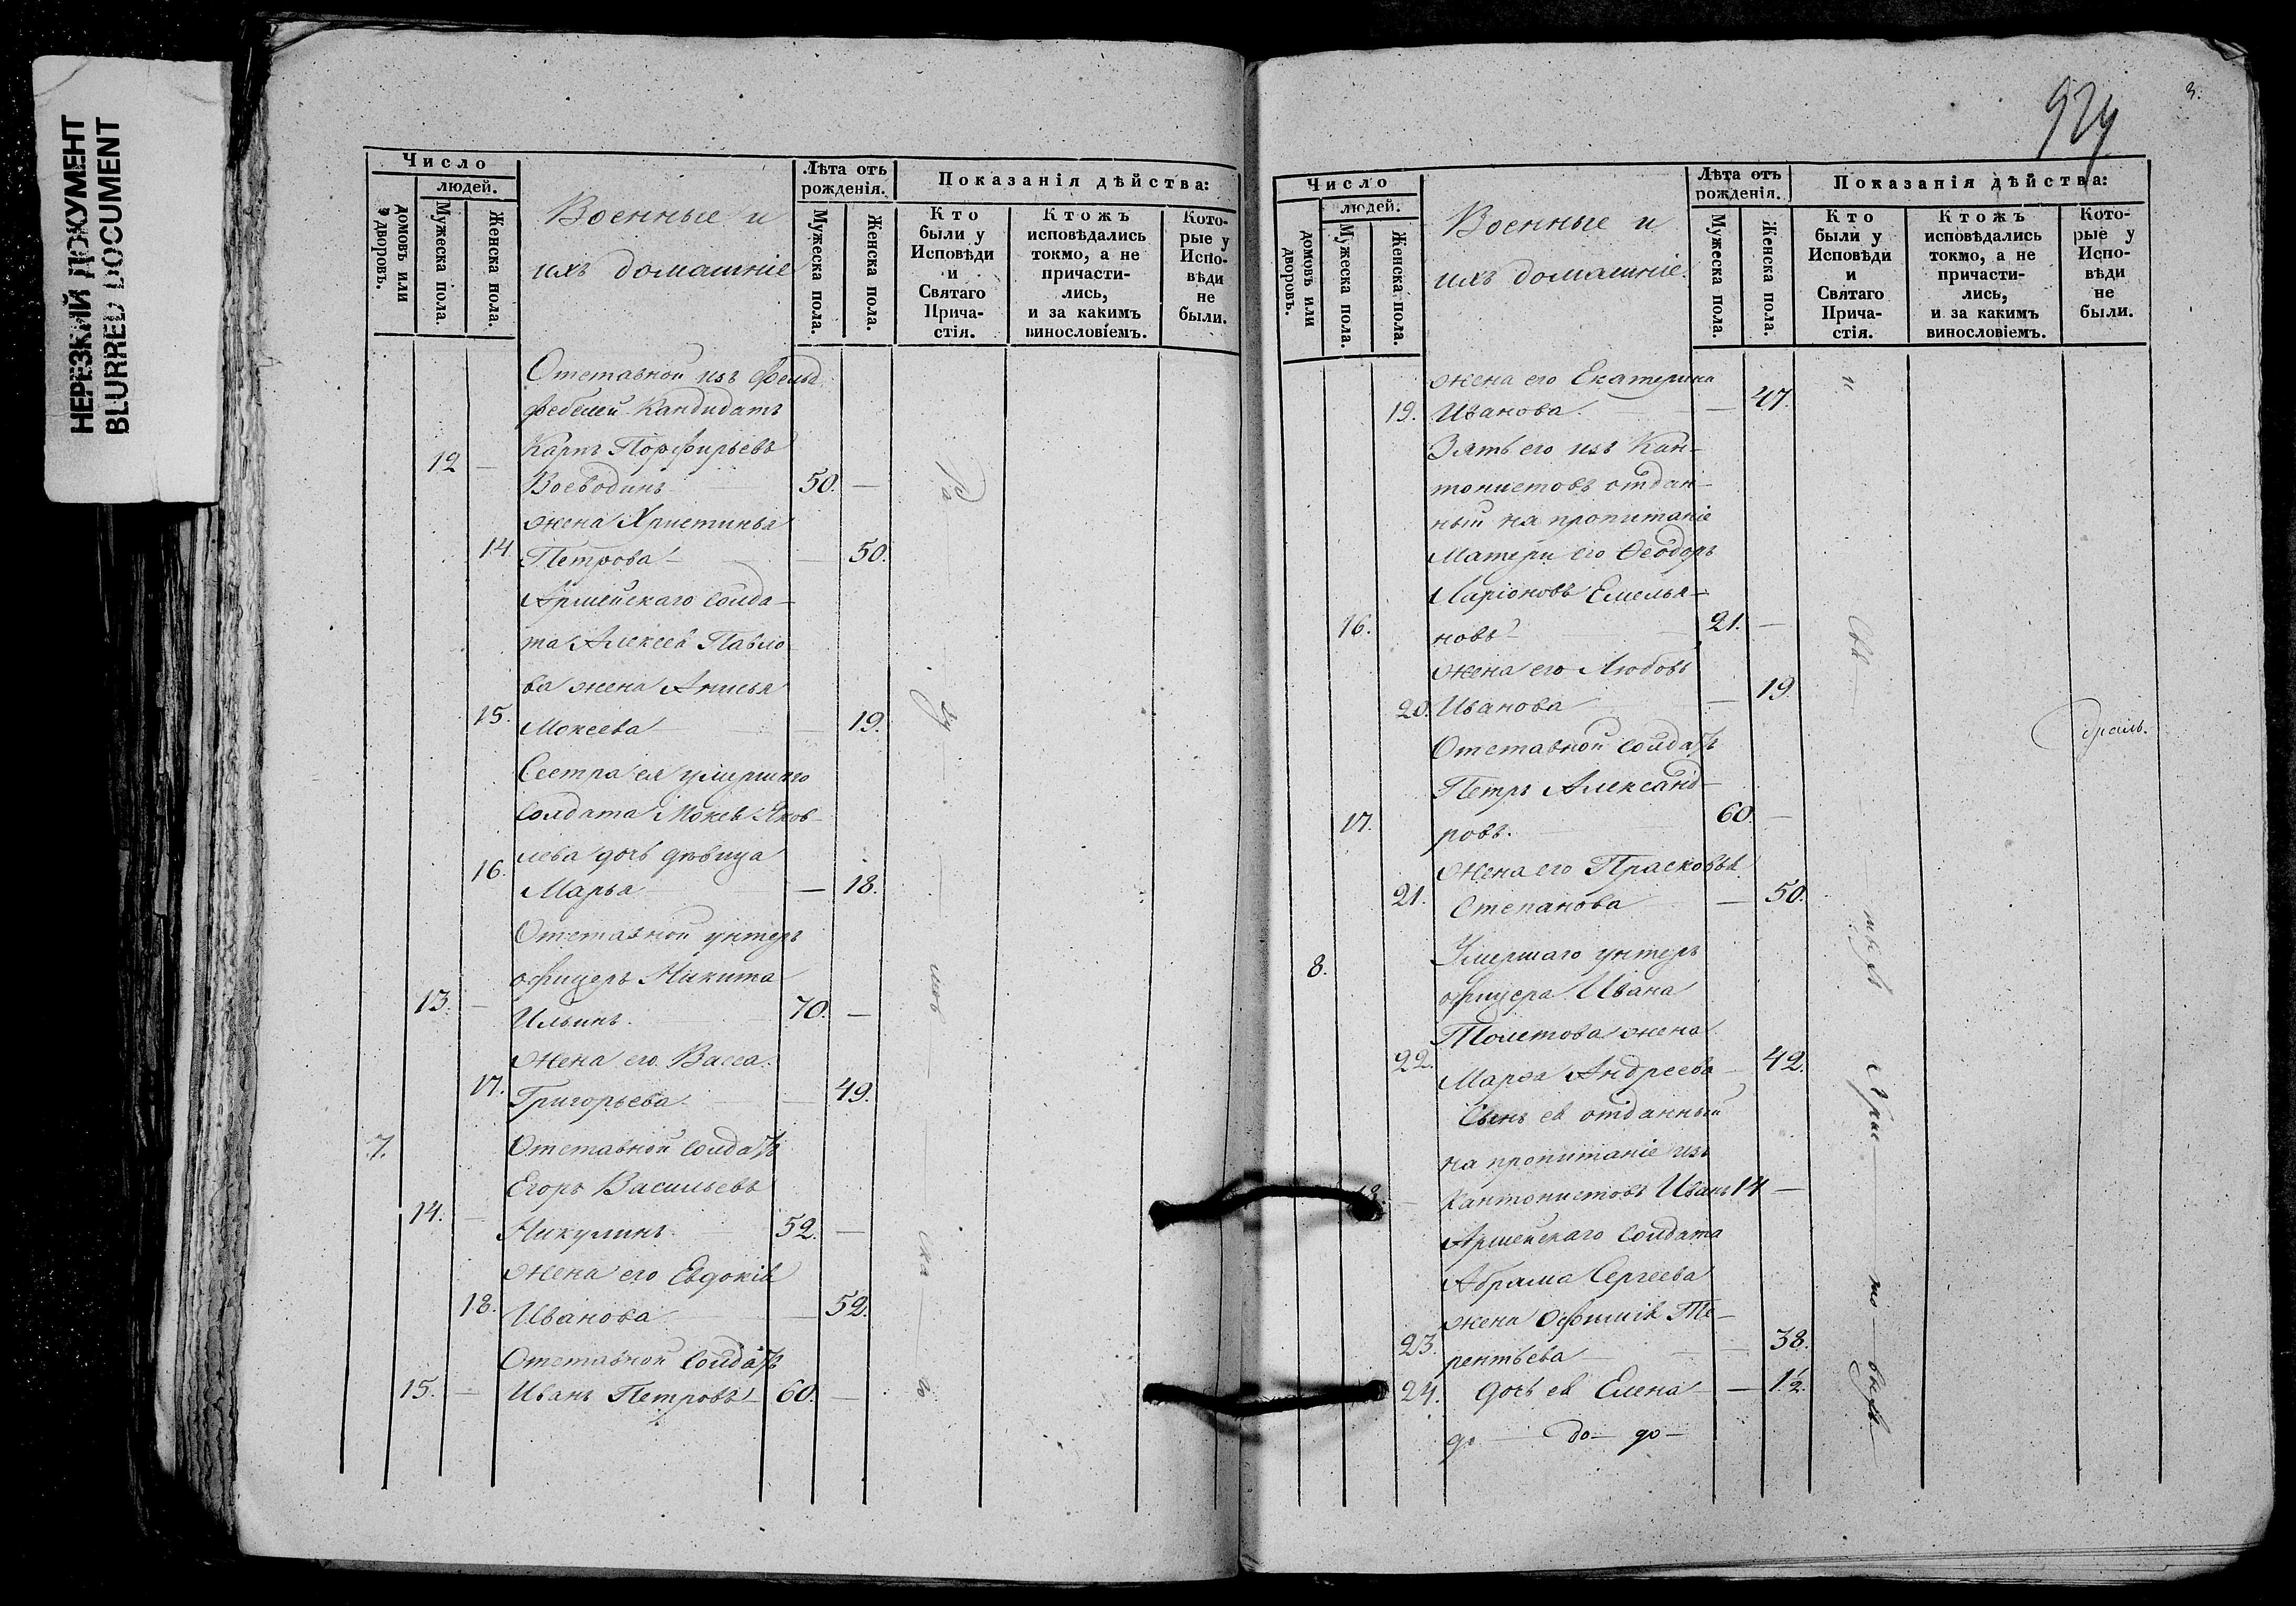 НЕРЕЗКИЙ ДОКУМЕНТ
BLURRED DOCUMENT
Число
людей.
домовъ или дворовъ.
Мужеска пола.
Женска пола.
Военные и
ихъ домашніе
Лѣта отъ
рожденія.
Мужеска пола.
Женска пола.
Показанія дѣйства:
Кто
были у
Исповѣди
и
Святаго
Прича-
стія.
Ктожъ
исповѣдались
токмо, а не
причасти-
лись,
и за какимъ
винословіемъ.
Кото-
рые у
Испо-
вѣди
не
были.
Отставной изъ Фельд
фебелей Кандидатъ
Карпъ Порфирьевъ
12 — Воеводинъ 50. —
жена Христинья
14 Петрова — — 50.
Армейскаго солда-
та Алексея Павло
ва жена Анисья
15. Мокеева — — 19.
Сестра ея умершаго
солдата Мокея Яков
лева дочь девица
16. Марья — 18.
Отставной унтеръ
офицеръ Никита
13. — Ильинъ. 70. —
жена его Васса
17. Григорьева — 49.
7. Отставной солдатъ
Егоръ Васильевъ
14. — Никулинъ 52. —
жена его Евдокія
18. Иванова — 52.
Отставной солдатъ
15. — Иванъ Петровъ — 60. —
924
3.
Число
людей.
домовъ или дворовъ.
Мужеска пола.
Женска пола.
Военные и
ихъ домашніе.
Лѣта отъ
рожденія.
Мужеска пола.
Женска пола.
Показанія дѣйства:
Кто
были у
Исповѣди
и
Святаго
Прича-
стія.
Ктожъ
исповѣдались
токмо, а не
причасти-
лись,
и за какимъ
винословіемъ.
Кото-
рые у
Испо-
вѣди
не
были.
жена его Екатерина
19. Иванова. — 47.
Зять его изъ Кан-
тонистовъ отдан-
ный на пропитаніе
Матери его Ѳеодоръ
Ларіоновъ Емелья-
16. новъ — 21. —
жена его Любовь
20. Иванова — 19.
Отставной солдатъ
Петръ Александ-
17. ровъ. 60. —
жена его Прасковья
21. Степанова — 50.
8. Умершаго унтеръ
офицера Ивана
Толстова жена
22. Марѳа Андреева — 42.
Сынъ ея отданный
на пропитаніе изъ
18. — Кантонистовъ Иванъ 14 —
Армейскаго солдата
Абрама Сергеева
жена Офимія Те-
23. рентьева — — 38.
24. дочь ея Елена — — 1½.
до — до — до —